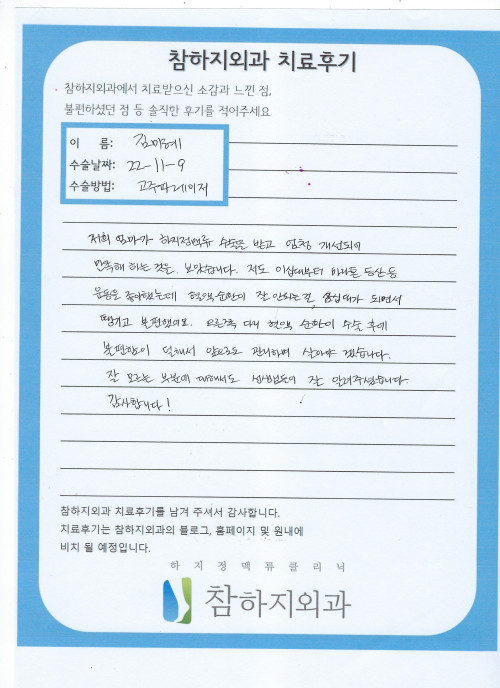 참하지외과 치료후기
참하지외과에서 치료받으신 소감과 느낀 점,
불편하셨던 점 등 솔직한 후기를 적어주세요
이 름: 김미혜
수술날짜: 22-11-9
수술방법: 고주파레이저
저희 엄마가 하지정맥류 수술을 받고 엄청 개선되어
만족해 하는 것을 보았습니다. 저도 이십대부터 마라톤 등산 등
운동을 좋아했는데 혈액순환이 잘 안되는 걸 삼십대가 되면서
땡기고 불편했어요. 오른쪽 다리 혈액 순환이 수술 후에
불편함이 덜해서 앞으로도 관리하며 살아야 겠습니다.
잘 모르는 부분에 대해서도 선생님들이 잘 알려주셨습니다.
감사합니다!
참하지외과 치료후기를 남겨 주셔서 감사합니다.
치료후기는 참하지외과의 블로그, 홈페이지 및 원내에
비치 될 예정입니다.
하지정맥류클리닉
참하지외과